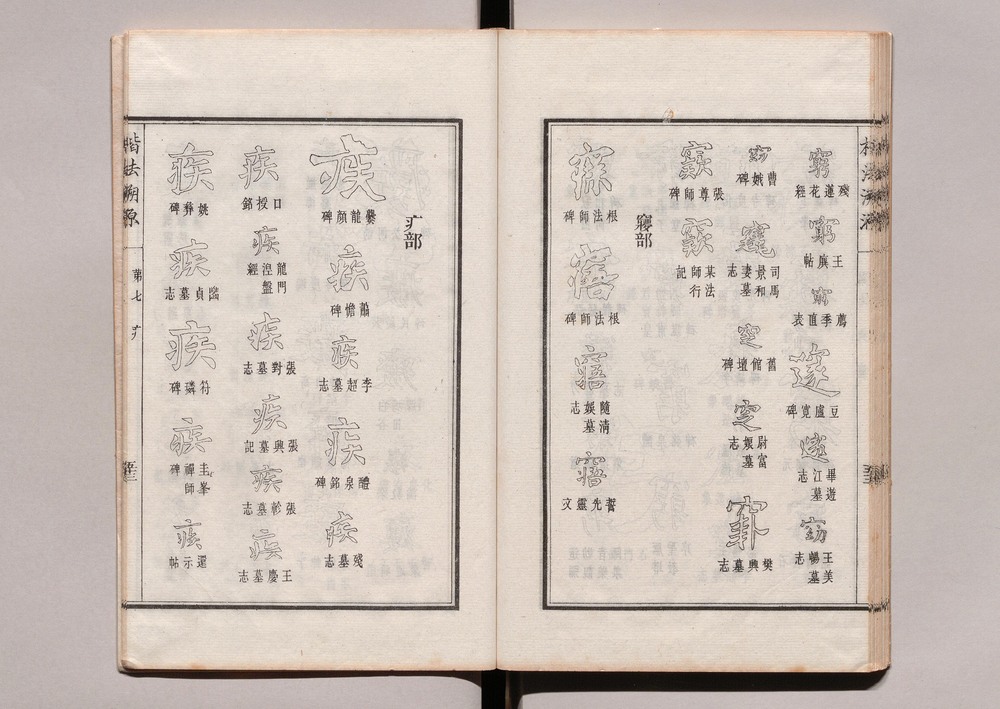 窮
殘蓮花經
窮
王廙帖
窮
薦季直表
邃
豆盧寬碑
邃
畢遊江墓志
窈
王美暢墓志
窈
曹娥碑
司馬景和妻墓志
窆
舊館壇碑
窆
尉富娘墓志
樊興墓志
張尊師碑
某法師行記
㝱部
寐
根法師碑
寤
根法師碑
寤
隨清娛墓志
寤
先靈文
疒部
疾
爨龍顏碑
疾
蕭憺碑
疾
李超墓志
疾
醴泉銘碑
疾
殘墓志
疾
口授銘
疾
龍門涅盤經
疾
張對墓志
疾
張興墓記
疾
張軫墓志
疾
王慶墓志
疾
姚彝碑
疾
臨貞墓志
疾
符璘碑
疾
圭峯禪師碑
疾
還示帖
楷法溯源
第七 疒